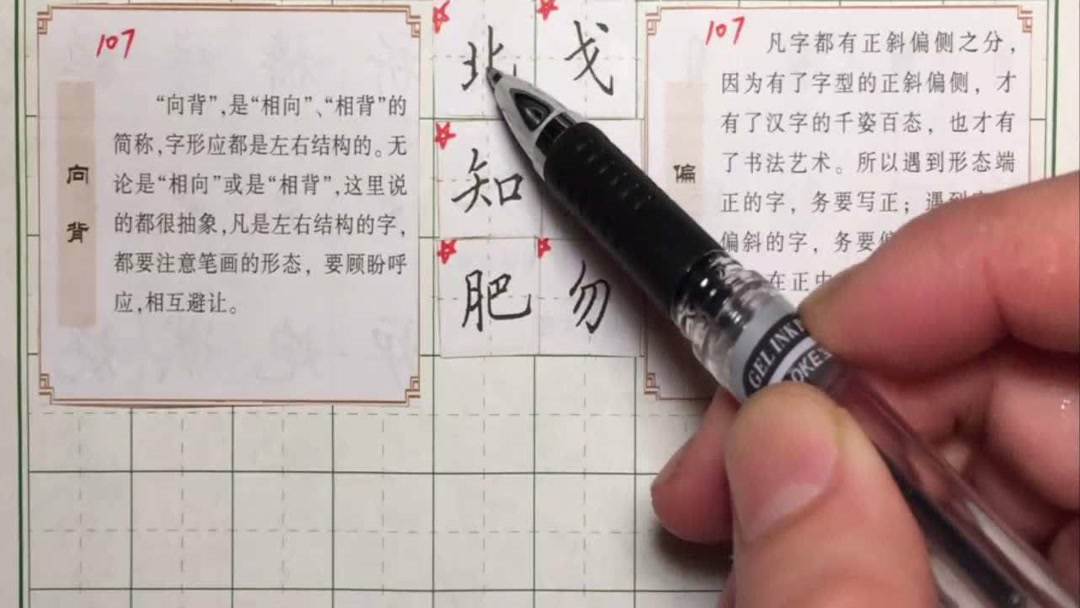 107
向背
“向背”,是“相向”、“相背”的
简称,字形应都是左右结构的。无
论是“相向”或是“相背”,这里说
的都很抽象,凡是左右结构的字,
都要注意笔画的形态，要顾盼呼
应,相互避让。
北 戈
知
肥 勿
107
偏
凡字都有正斜偏侧之分，
因为有了字型的正斜偏侧，才
有了汉字的千姿百态，也才有
了书法艺术。所以遇到形态端
正的字，务要写正；遇到
偏斜的字，务要偏
在正中
GEL INK
OKE